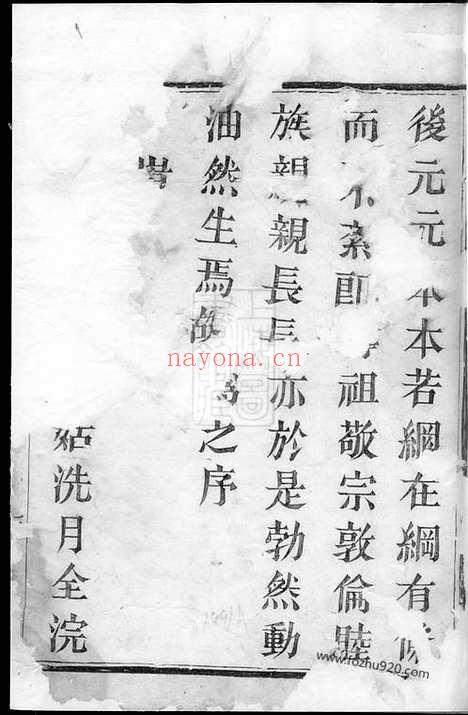 後元元本本若網在綱有條
而不紊即尊祖敬宗敦倫睦
族親親長長亦於是勃然動
油然生焉故為之序
旹
姑洗月全浣
nayona.cn
www.fozhu920.com